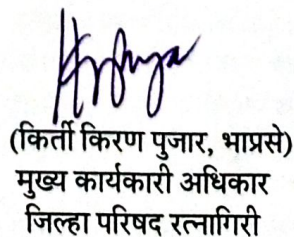 (किर्ती किरण पुजार, भाप्रसे)
मुख्य कार्यकारी अधिकार
जिल्हा परिषद रत्नागिरी